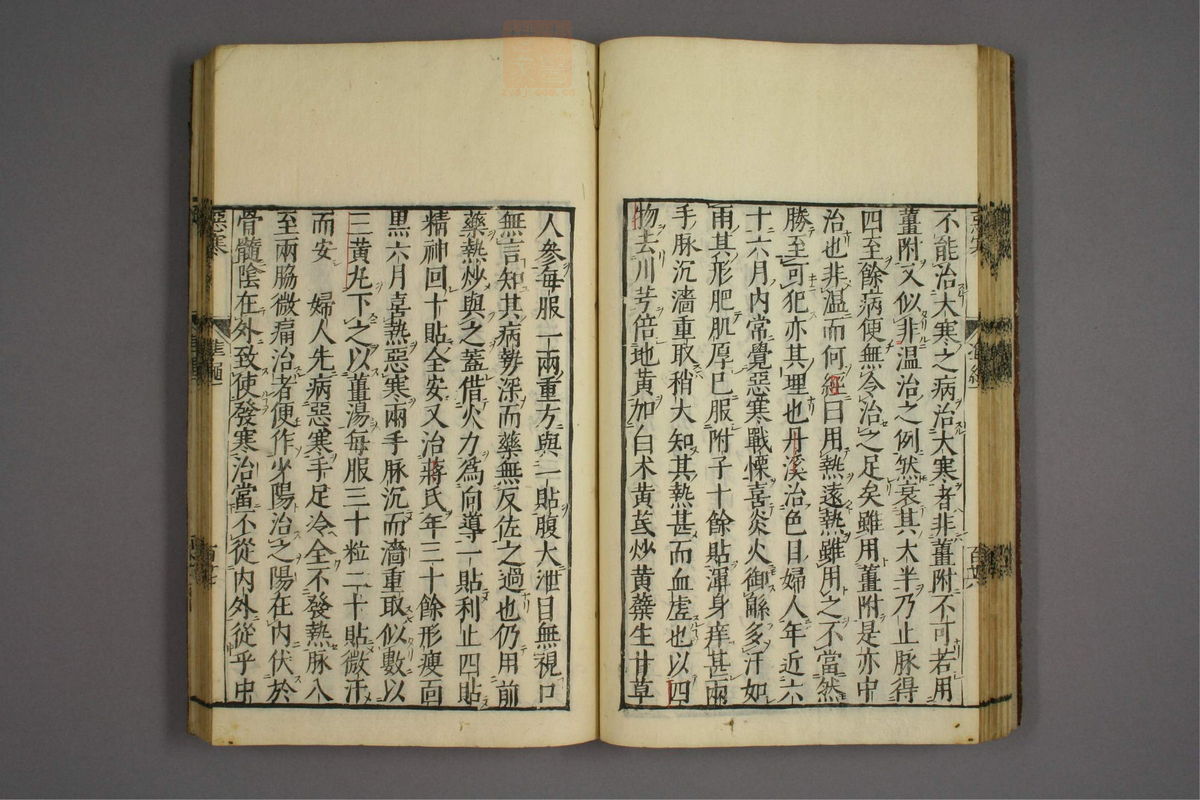 不能治大寒之病治大寒者非薑附不可若用
薑附又似非温治之例然衰其太半乃止脉得
四至餘病便無令治之足矣雖用薑附是亦中
治也非温而何經曰用熱遠熱雖用之不當然
勝至可犯亦其理也丹溪治色目婦人年近六
十六月内常覺惡寒戰慄喜炎火御綿多汗如
雨其形肥肌厚已服附子十餘貼渾身痒甚兩
手脉沉濇重取稍大知其熱甚而血虚也以四
物去川芎倍地黄加白术黄芪炒黄蘗生甘草
人參每服一兩重方與一貼腹大泄目無視口
無言知其病勢深而藥無反佐之過也仍用前
藥熱炒與之蓋借火力為向導一貼利止四貼
精神回十貼全安又治蔣氏年三十餘形瘦面
黒六月喜熱惡寒兩手脉沉而濇重取似數以
三黄丸下之以薑湯每服三十粒二十貼微汗
而安 婦人先病惡寒手足冷全不發熱脉八
至兩脇微痛治者便作少陽治之陽在内伏於
骨髓陰在外致使發寒治當不從内外從乎中
惡寒